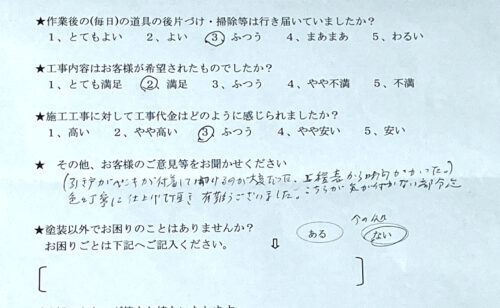 ★作業後の(毎日)の道具の後片づけ・掃除等は行き届いていましたか？
1、とてもよい　2、よい　3、ふつう　4、まあまあ　5、わるい
★工事内容はお客様が希望されたものでしたか？
1、とても満足　2、満足　3、ふつう　4、やや不満　5、不満
★施工工事に対して工事代金はどのように感じられましたか？
1、高い　2、やや高い　3、ふつう　4、やや安い　5、安い
★　その他、お客様のご意見等をお聞かせください
(引き戸がペンキが付着して開けるのが大変だった、工程表から時間かかった。)
色々丁寧に仕上げて頂き有難うございました。こちらが気が付かない部分迄
今の処
★塗装以外でお困りのことはありませんか？　ある　ない
お困りごとは下記へご記入ください。　⇩